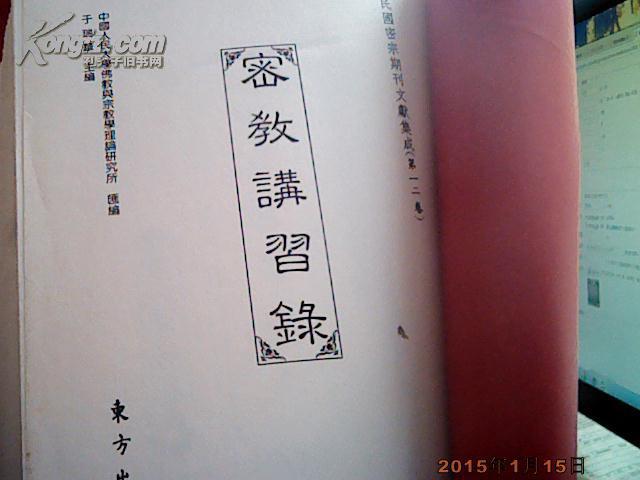 民國密宗期刊文獻集成(第一二卷)
密教講習錄
中國人民大學佛教與宗教學理論研究所 匯編
于瑞華 主編
東方出
2015年1月15日